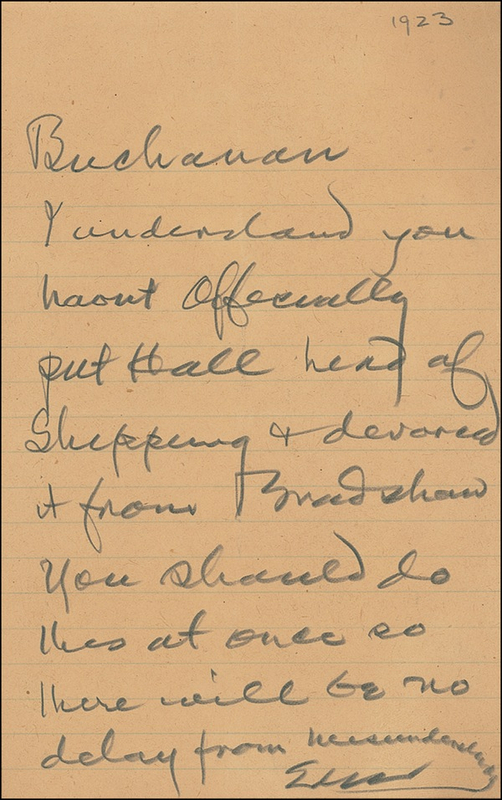 1923
Buchanan
I understand you
havnt Offecially
put Hall head of
Shipping & devorced
it from Bradshaw
You should do
this at once so
there will be no
delay from misunderstanding